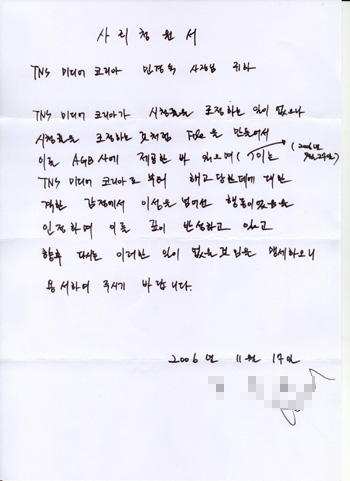 사리청원서
TNS 미디어 코리아 민경숙 사장님 귀하
TNS 미디어 코리아가 시청률을 조정하는 일이 없으나
시청률을 조정하는 것처럼 File을 만들어서
이를 AGB사에 제공한 바 있으며( )이는
(2006년
TNS 미디어 코리아로 부터 해고 당한데에 대한
격한 감정에서 이성을 넘어선 행동이었음을
인정하며 이를 깊이 반성하고 있고
향후 다시는 이러한 일이 없을 것임을 맹세하오니
용서하여 주시기 바랍니다.
2006년 11월 14일